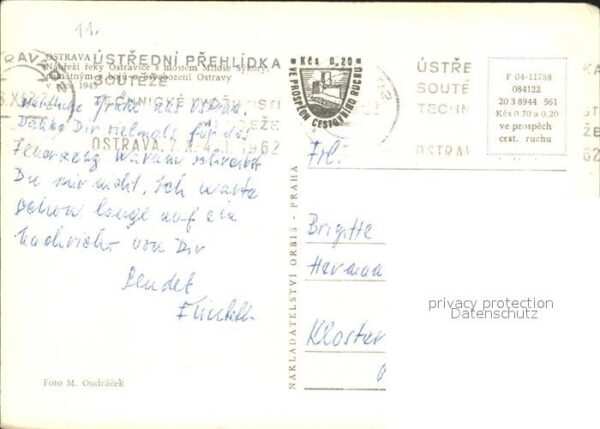 11.
OSTRAVA
Nábřeží řeky Ostravice s mostem Miloše Sýkory,
památným z bojů o osvobození Ostravy
v r. 1945
ÚSTŘEDNÍ PŘEHLÍDKA
SOUTĚŽE
TECHNICKÉ
OSTRAVA
1962
Kčs 0,20
VE PROSPĚCH CESTOVNÍHO RUCHU
ÚSTŘE
SOUTĚ
TECHN
OSTRAV
F 04-11788
084122
20 3 8944 561
Kčs 0.70 a 0.20
ve prospěch
cest. ruchu
Grüße aus Ostrava.
Danke Dir vielmals für das
Feuerzeug Warum schreibst
Du mir nicht. Ich warte
schon lange auf ein
Nachricht von Dir
Sendet
Frl.
Brigitte
Herman
Kloster
NAKLADATELSTVÍ ORBIS - PRAHA
Foto M. Ondráček
privacy protection
Datenschutz